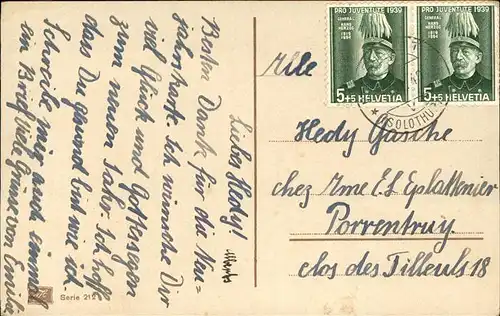 Liebes Hedy!
Besten Dank für die Neu-
jahrskarte. Ich wünsche Dir
viel Glück und Gottessegen
zum neuen Jahr. Ich hoffe
dass Du gesund bist wie ich.
Schreibe mir auch einmal
ein Brief. Viele Grüsse von Emil
Serie 212
PRO JUVENTUTE 1939
GENERAL
HANS
HERZOG
1819
1894
5+5 HELVETIA
PRO JUVENTUTE 1939
GENERAL
HANS
HERZOG
1819
1894
5+5 HELVETIA
SOLOTHU
Mlle
Hedy Gasche
chez Mme E.S Eplattenier
Porrentruy.
clos des Tilleuls 18